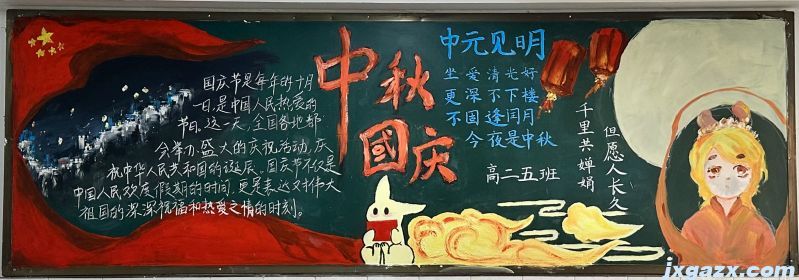 国庆节是每年的十月
一日,是中国人民热爱的
节日。这一天,全国各地都
会举办盛大的庆祝活动,庆
祝中华人民共和国的诞辰。国庆节不仅是
中国人民欢度假期的时间,更是表达对伟大
祖国的深深祝福和热爱之情的时刻。
中秋
國庆
中元见明
坐爱清光好
更深不下楼
不因逢闰月
今夜是中秋
高二五班
但愿人长久
千里共婵娟
jxgazx.com